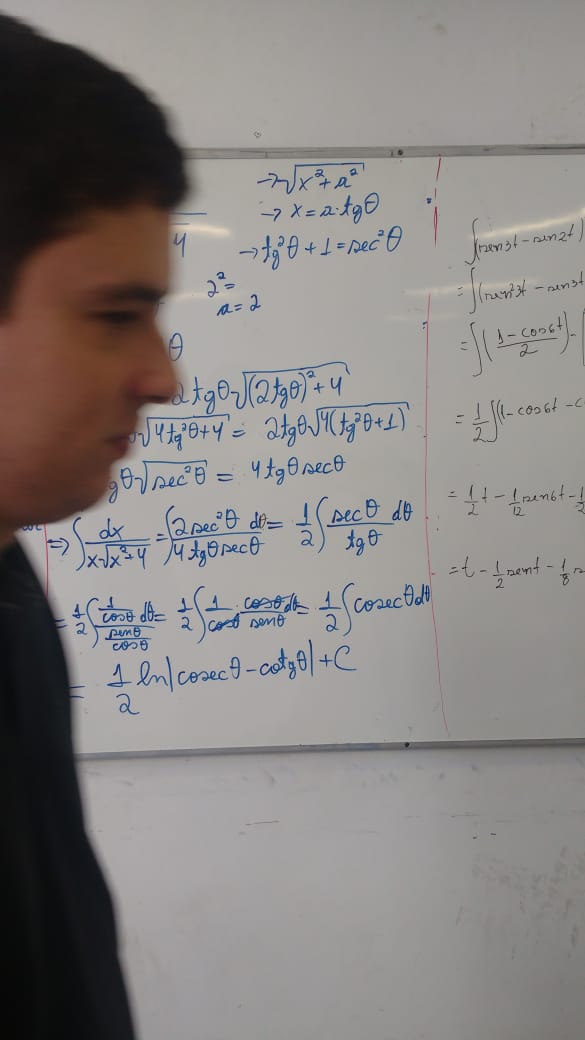 → √(x² + a²)
→ x = a·tgθ
4 → tg²θ + 1 = sec²θ
2² =
a = 2
θ
2tgθ√((2tgθ)² + 4)
√(4tg²θ + 4) = 2tgθ√(4(tg²θ + 1))
gθ√(sec²θ) = 4tgθsecθ
⇒ ∫ dx/(x√(x²+4)) = ∫ (2sec²θ dθ)/(4tgθsecθ) = 1/2 ∫ (secθ dθ)/tgθ
= 1/2 ∫ (1/cosθ dθ)/(senθ/cosθ) = 1/2 ∫ 1/cosθ · cosθ dθ/senθ = 1/2 ∫ cosecθ dθ
= 1/2 ln|cosecθ - cotgθ| + C
∫(sen3t - sen2t)
= ∫(sen²3t - sen3t
= ∫(1 - cos6t)/2) -
= 1/2 ∫(1 - cos6t - c
= 1/2 t - 1/12 sen6t - 1/2
= t - 1/2 sent - 1/8